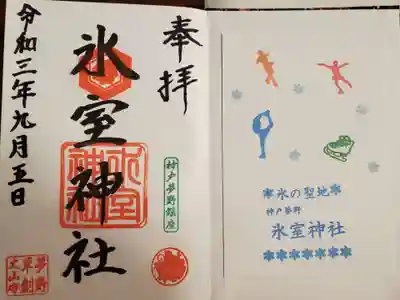 奉拝
氷室神社
令和三年九月五日
氷室神社
神戸夢野鎮座
夢野
✻氷の聖地✻
神戸夢野
氷室神社